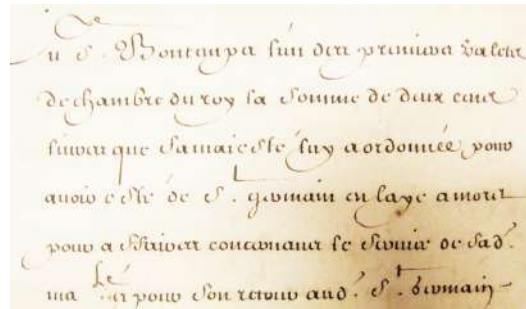 Au S.r Bontemps l'un des premiers valets
de chambre du roy la somme de deux cens
livres que sa majesté luy a ordonnée pour
avoir esté de S.t germain en laye a
pour affaires concernans le service de sad.
ma.té et pour son retour aud. S.t germain